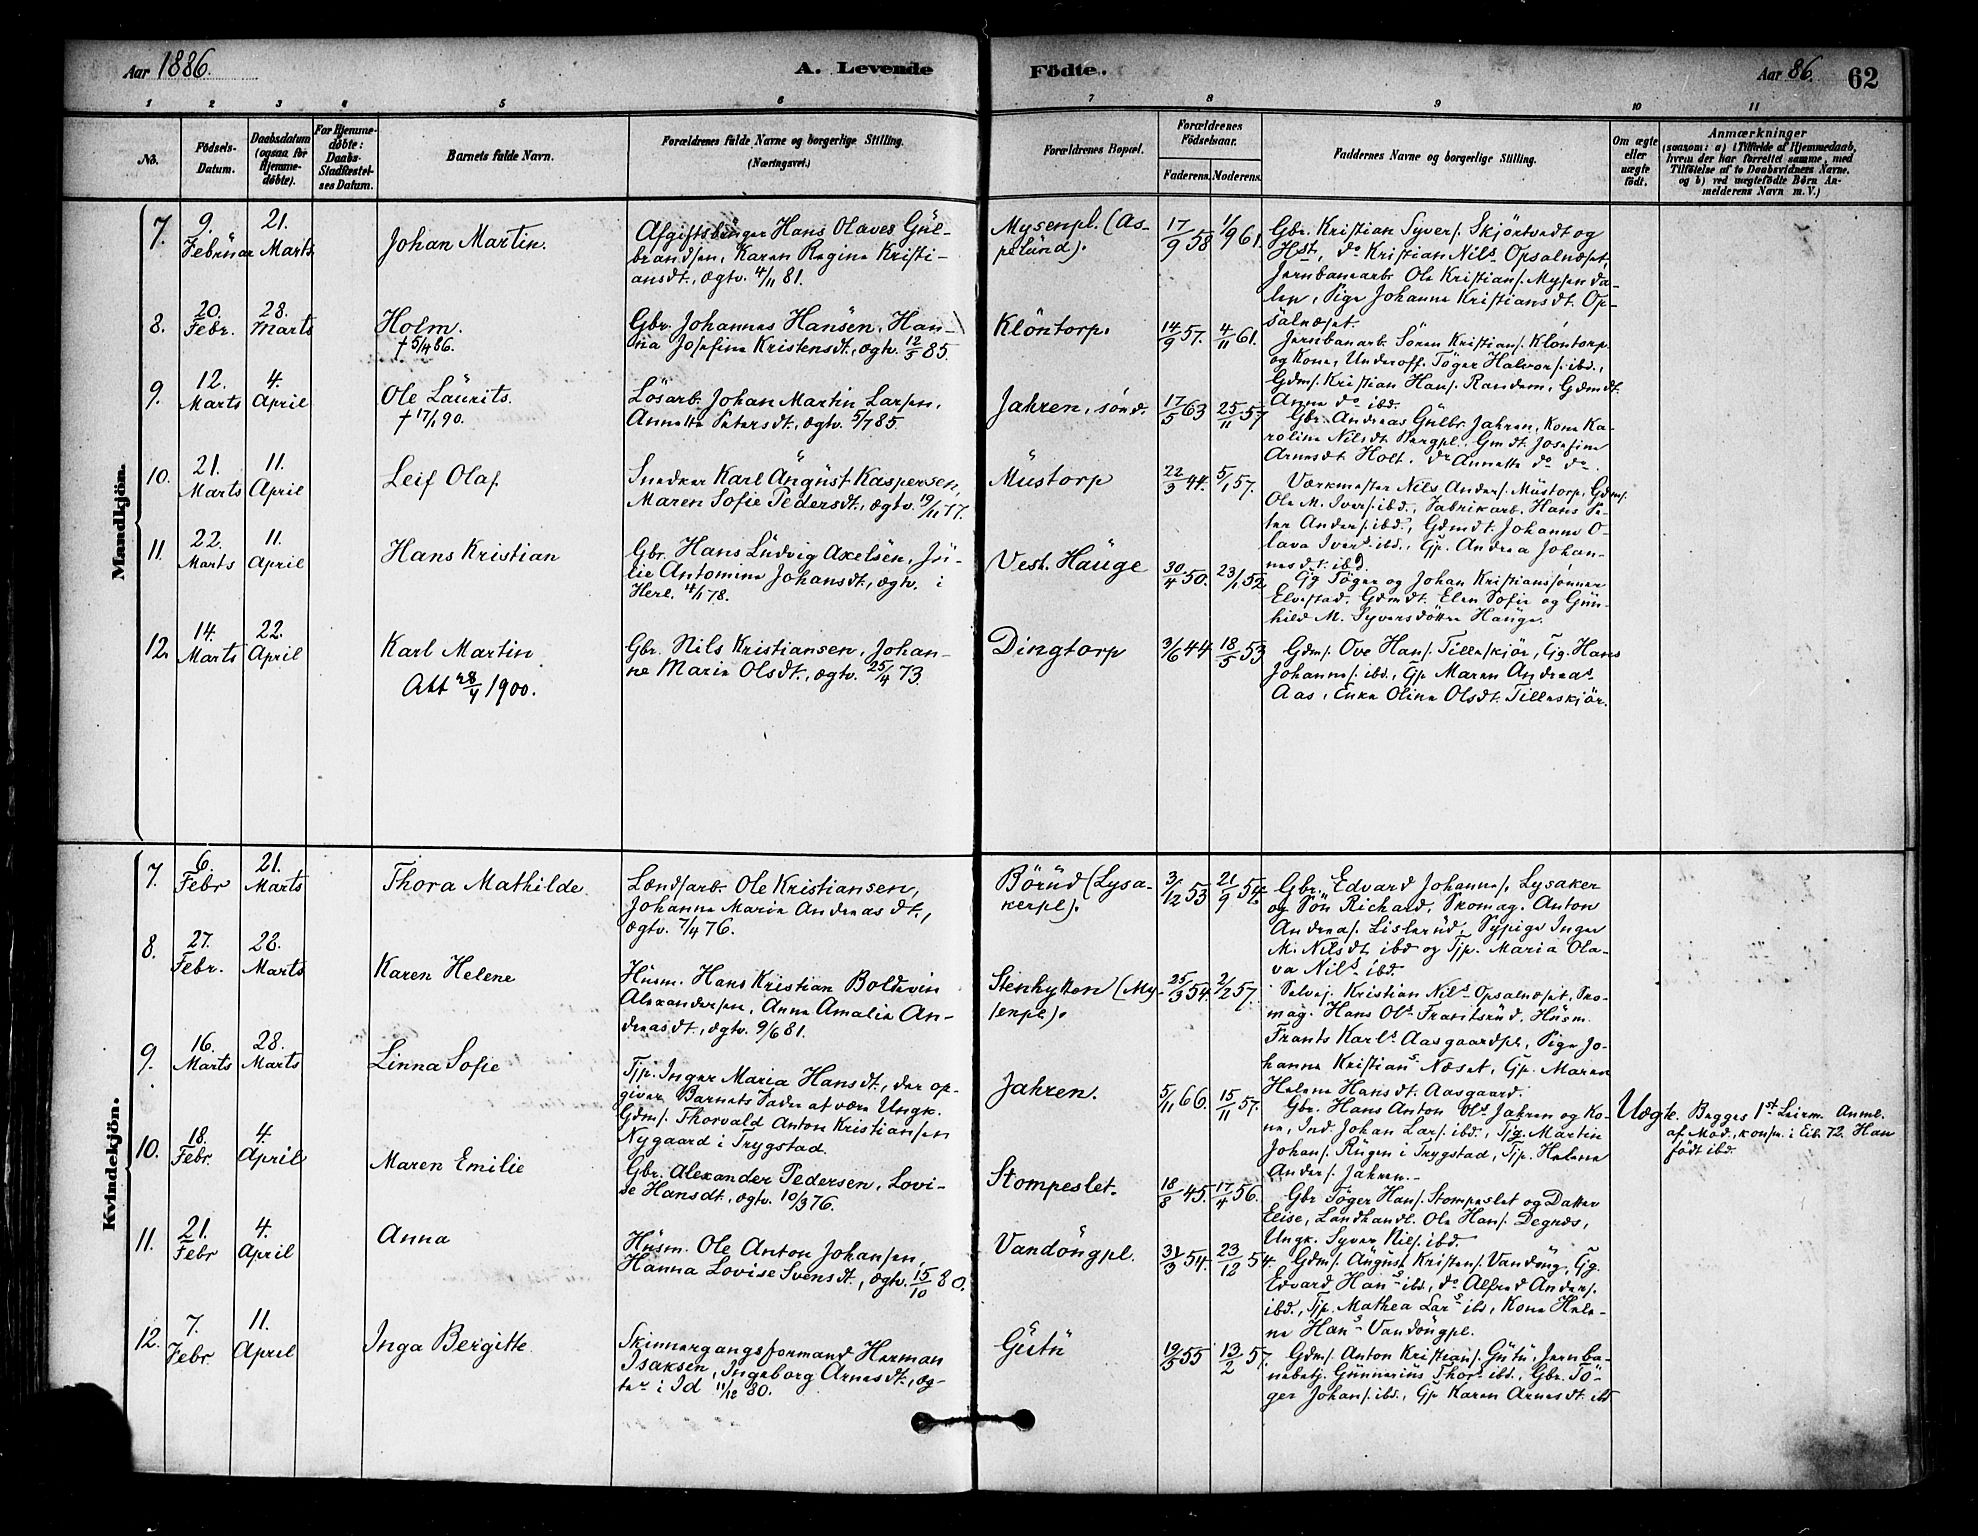 Aar 1886.
A. Levende
Födte.
Aar 86.
62
1 2 3 4 5 6 7 8 9 10 11
No.
Födsels-
Datum.
Daabsdatum
(ogsaa for
Hjemme-
döbte).
For Hjemme-
døbte:
Daabs-
Stadfæstel-
ses Datum.
Barnets fulde Navn.
Forældrenes fulde Navne og borgerlige Stilling.
(Næringsvei.)
Forældrenes Bopæl.
Forældrenes
Födselsaar.
Faderens. Moderens.
Faddernes Navne og borgerlige Stilling.
Om ægte
eller
uægte
födt.
Anmærkninger
(saasom: a) i Tilfælde af Hjemmedaab,
hvem der har forrettet samme, med
Tilföielse af to Daabsvidners Navne,
og b) ved uægtefödte Börn An-
melderens Navn m. V.)
Mandkjön.
7.
9.
Februar
21.
Marts
Johan Martin.
Afgiftsbruger Hans Olaves Gul-
brandsen, Karen Regine Kristi-
ansdt., ægtv. 4/11 81.
Mysenpl. (As-
pelund).
17/9 58
1/9 61.
Gbr. Kristian Syvers. Skjörtvedt og
Hst., do Kristian Nils. Opsalnæset
Jernbanearb. Ole Kristians. Mysenda-
len, Pige Johanne Kristiansdt. Op-
salnæset.
8.
20.
Febr.
28.
Marts
Holm.
† 5/4 86.
Gbr. Johannes Hansen, Han-
na Josefine Kristensdt., ægtv. 12/5 85.
Klöntorp.
14/9 57.
4/11 61.
Jernbanearb. Sören Kristians. Klöntorp
og Kone, Underoff. Töger Halvors. ibd.,
Gdms. Kristian Hans. Randem, Gdmdt.
Anna do ibd.
9.
12.
Marts
4.
April
Ole Laurits.
† 17/1 90.
Lösarb. Johan Martin Larsen,
Annette Petersdt., ægtv. 5/7 85.
Jahren, sönd.
17/5 63
25/11 57
Gbr. Andreas Gulbr. Jahren, Kone Ka-
roline Nilsdt. Bergpl., Gmdt. Josefine
Arnesdt. Holt, do Annette do do.
10.
21.
Marts
11.
April
Leif Olaf.
Snedker Karl August Kaspersen,
Maren Sofie Pedersdt., ægtv. 19/11 77.
Mustorp
22/3 44.
5/1 57.
Værkmester Nils Anders. Mustorp, Gdms.
Ole M. Ivers. ibd., Fabrikarb. Hans Pe-
ter Anders. ibd., Gdmdt. Johanne O-
lava Ivers. ibd., Gp. Andrea Johan-
nesdt. ibd.
11.
22.
Marts
11.
April
Hans Kristian
Gbr. Hans Ludvig Axelsen, Ju-
lie Antomine Johansdt., ægtv. i
Herl. 4/1 78.
Vest. Hauge
30/4 50.
23/1 52
Gg Töger og Johan Kristianssönner
Elvestad, Gdmdt. Elen Sofie og Gun-
hild M. Syversdöttre Hauge.
12.
14.
Marts
22.
April
Karl Martin
Att 28/4 1900.
Gbr. Nils Kristiansen, Johan-
ne Marie Olsdt., ægtv. 25/4 73.
Dingtorp
3/6 44
18/5 53
Gdms. Ove Hans. Tilleskjör, Gg. Hans
Johannes. ibd., Gp Maren Andreas.
Aas, Enke Oline Olsdt. Tilleskjör.
Kvindekjön.
7.
6.
Febr
21.
Marts
Thora Mathilde
Lændsarb. Ole Kristiansen,
Johanne Marie Andreasdt.,
ægtv. 7/4 76.
Börud (Lysa-
kerpl).
3/12 53
21/9 54.
Gbr. Edvard Johannes. Lysaker
og Sön Richard, Skomag. Anton
Andreas. Lislerud, Sypige Inger
M. Nilsdt. ibd og Tjp. Maria Ola-
va Nils. ibd.
8.
27.
Febr.
28.
Marts
Karen Helene
Husm. Hans Kristian Boldvin
Alexandersen, Anne Amalie An-
dreasdt., ægtv. 9/6 81.
Stenhytten (My-
senpl).
25/3 54.
2/2 57.
Selvej. Kristian Nils. Opsalnæset, Sko-
mag. Hans Ols. Frantsrud, Husm.
Frants Karls. Aasgaardpl., Pige Jo-
hanne Kristians. Næset, Gp. Maren
Helene Hansdt. Aasgaard.
9.
16.
Marts
28.
Marts
Linna Sofie
Tjp. Inger Maria Hansdt., der op-
giver Barnets Fader at være Ungk.
Gdms. Thorvald Anton Kristiansen
Nygaard i Trygstad.
Jahren.
5/11 66.
15/11 57.
Gbr. Hans Anton Ols. Jahren og Ko-
ne, Ind. Johan Lars. ibd., Tjg. Martin
Johans. Rugen i Trygstad, Tjp. Helene
Anders. Jahren.
Uægte.
Begges 1st Leirm. Anml.
af Mod., konfm. i Eib. 72. Han
födt ibd.
10.
18.
Febr.
4.
April
Maren Emilie
Gbr. Alexander Pedersen, Lovi-
se Hansdt., ægtv. 10/3 76.
Stompeslet.
18/8 45.
17/4 56.
Gbr Töger Hans. Stompeslet og Datter
Elise, Landhandl. Ole Hans. Degnæs,
Ungk. Syver Nils. ibd.
11.
21.
Febr
4.
April
Anna
Husm. Ole Anton Johansen,
Hanna Lovise Svensdt., ægtv. 15/10 80.
Vandöngpl.
31/3 54.
23/12 54.
Gdms. August Kristens. Vandöng, Gg.
Edvard Hans. ibd., do Alfred Anders.
ibd., Tjp. Mathea Lars. ibd, Kone Hele-
ne Hans. Vandöngpl.
12.
7.
Febr.
11.
April
Inga Bergitte
Skinnergangsformand Herman
Isaksen, Ingeborg Arnesdt., æg-
tev. i Id 11/12 80.
Gutu
19/5 55
13/2 57.
Gdms. Anton Kristians. Gutu, Jernba-
nebetj. Gunnerius Thors. ibd., Gbr. Tö-
ger Johans. ibd., Gp Karen Arnesdt. ibd